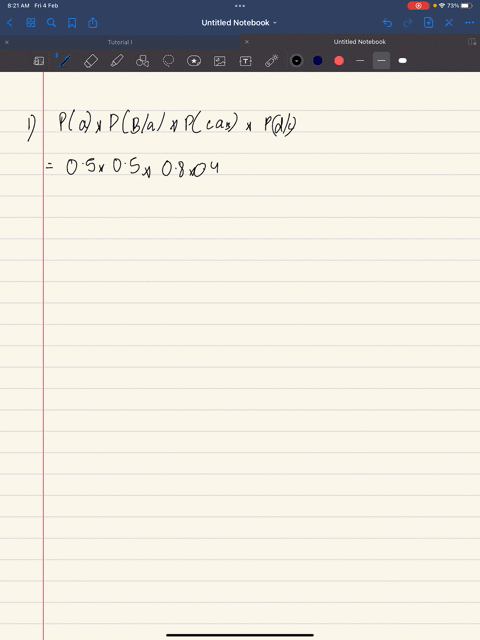 8:21 AM Fri 4 Feb 73%
Untitled Notebook
Tutorial I Untitled Notebook
1) P(a) x P(B/a) x P(c a,B) x P(d/c)
= 0.5 x 0.5 x 0.8 x 0 4